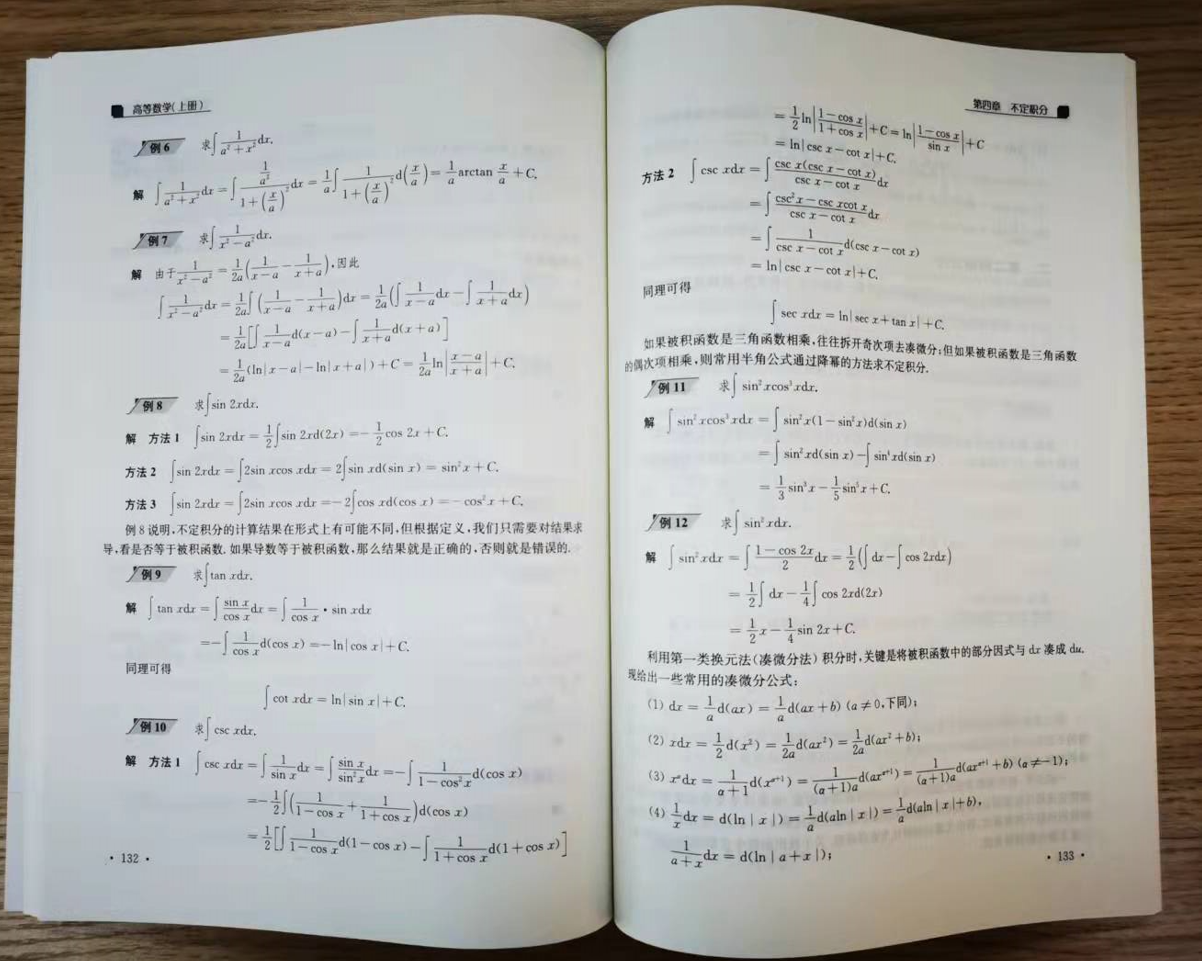 高等数学(上册)
例6 求∫1/(a²+x²)dx.
解 ∫1/(a²+x²)dx=∫(1/a²)/(1+(x/a)²)dx=1/a∫1/(1+(x/a)²)d(x/a)=1/a arctan x/a+C.
例7 求∫1/(x²-a²)dx.
解 由于1/(x²-a²)=1/2a(1/(x-a)-1/(x+a)),因此
∫1/(x²-a²)dx=1/2a∫(1/(x-a)-1/(x+a))dx=1/2a(∫1/(x-a)dx-∫1/(x+a)dx)
=1/2a[∫1/(x-a)d(x-a)-∫1/(x+a)d(x+a)]
=1/2a(ln|x-a|-ln|x+a|)+C=1/2a ln|(x-a)/(x+a)|+C.
例8 求∫sin 2xdx.
解 方法1 ∫sin 2xdx=1/2∫sin 2xd(2x)=-1/2cos 2x+C.
方法2 ∫sin 2xdx=∫2sin xcos xdx=2∫sin xd(sin x)=sin²x+C.
方法3 ∫sin 2xdx=∫2sin xcos xdx=-2∫cos xd(cos x)=-cos²x+C.
例8说明,不定积分的计算结果在形式上有可能不同,但根据定义,我们只需要对结果求
导,看是否等于被积函数.如果导数等于被积函数,那么结果就是正确的,否则就是错误的.
例9 求∫tan xdx.
解 ∫tan xdx=∫sin x/cos x dx=∫1/cos x·sin xdx
=-∫1/cos x d(cos x)=-ln|cos x|+C.
同理可得
∫cot xdx=ln|sin x|+C.
例10 求∫csc xdx.
解 方法1 ∫csc xdx=∫1/sin x dx=∫sin x/sin²x dx=-∫1/(1-cos²x)d(cos x)
=-1/2∫(1/(1-cos x)+1/(1+cos x))d(cos x)
=1/2[∫1/(1-cos x)d(1-cos x)-∫1/(1+cos x)d(1+cos x)]
·132·
第四章 不定积分
=1/2 ln|(1-cos x)/(1+cos x)|+C=ln|(1-cos x)/sin x|+C
=ln|csc x-cot x|+C.
方法2 ∫csc xdx=∫csc x(csc x-cot x)/(csc x-cot x)dx
=∫(csc²x-csc xcot x)/(csc x-cot x)dx
=∫1/(csc x-cot x)d(csc x-cot x)
=ln|csc x-cot x|+C.
同理可得
∫sec xdx=ln|sec x+tan x|+C.
如果被积函数是三角函数相乘,往往拆开奇次项去凑微分;但如果被积函数是三角函数
的偶次项相乘,则常用半角公式通过降幂的方法求不定积分.
例11 求∫sin²xcos³xdx.
解 ∫sin²xcos³xdx=∫sin²x(1-sin²x)d(sin x)
=∫sin²xd(sin x)-∫sin⁴xd(sin x)
=1/3sin³x-1/5sin⁵x+C.
例12 求∫sin²xdx.
解 ∫sin²xdx=∫(1-cos 2x)/2 dx=1/2(∫dx-∫cos 2xdx)
=1/2∫dx-1/4∫cos 2xd(2x)
=1/2x-1/4sin 2x+C.
利用第一类换元法(凑微分法)积分时,关键是将被积函数中的部分因式与dx凑成du.
现给出一些常用的凑微分公式:
(1) dx=1/a d(ax)=1/a d(ax+b)(a≠0,下同);
(2) xdx=1/2d(x²)=1/2a d(ax²)=1/2a d(ax²+b);
(3) xᵅdx=1/(α+1)d(xᵅ⁺¹)=1/((α+1)a)d(axᵅ⁺¹)=1/((α+1)a)d(axᵅ⁺¹+b)(α≠-1);
(4) 1/x dx=d(ln|x|)=1/a d(aln|x|)=1/a d(aln|x|+b),
1/(a+x)dx=d(ln|a+x|);
·133·